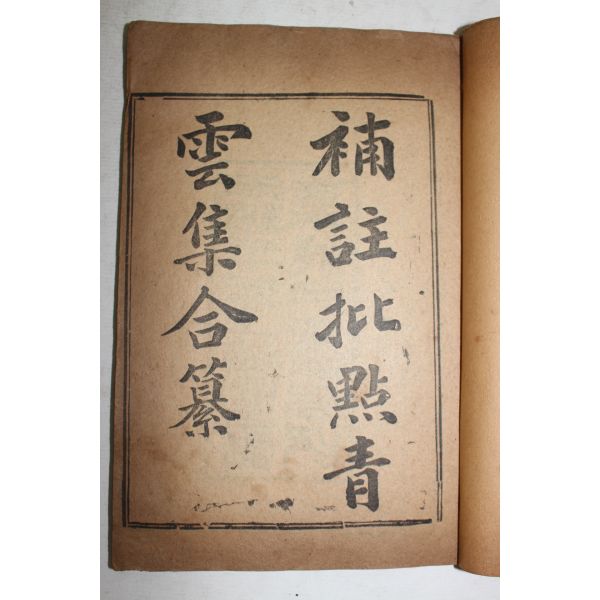 補註批點青
雲集合纂